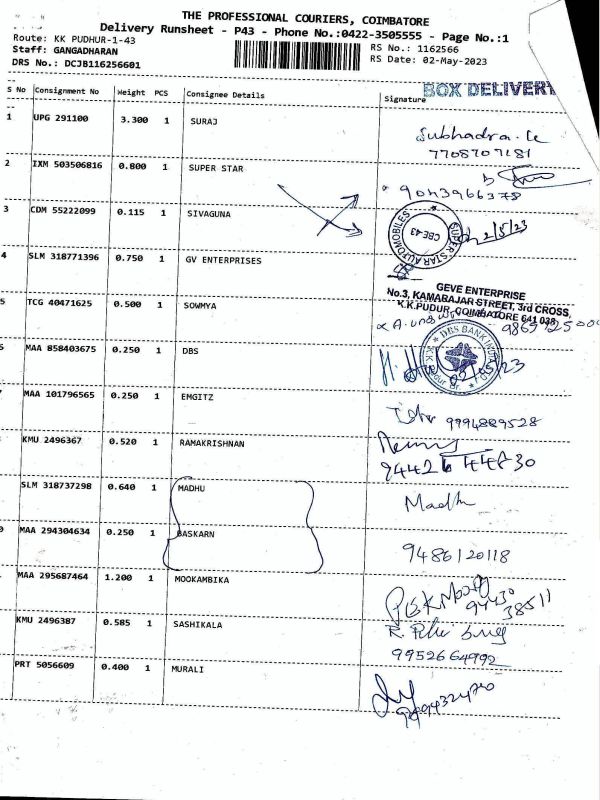 THE PROFESSIONAL COURIERS, COIMBATORE
Delivery Runsheet - P43 - Phone No.:0422-3505555 - Page No.:1
Route: KK PUDHUR-1-43
RS No.: 1162566
Staff: GANGADHARAN
RS Date: 02-May-2023
DRS No.: DCJB116256601
BOX DELIVERY
S No Consignment No Weight PCS Consignee Details Signature
1 UPG 291100 3.300 1 SURAJ
Subhadra
7708707181
2 IXM 503506816 0.800 1 SUPER STAR
9043966378
3 CDM 55222099 0.115 1 SIVAGUNA
SUPER STAR AUTOMOBILES
CBE-43
2/5/23
4 SLM 318771396 0.750 1 GV ENTERPRISES
GEVE ENTERPRISE
No.3, KAMARAJAR STREET, 3rd CROSS,
K.K.PUDUR, COIMBATORE 641 038
5 TCG 40471625 0.500 1 SOWMYA
6 MAA 858403675 0.250 1 DBS
DBS BANK
02/05/23
MAA 101796565 0.250 1 EMGITZ
9994889528
KMU 2496367 0.520 1 RAMAKRISHNAN
94426 44830
SLM 318737298 0.640 1 MADHU
Madhu
MAA 294304634 0.250 1 BASKARN
9486120118
MAA 295687464 1.200 1 MOOKAMBIKA
94430
38511
KMU 2496387 0.585 1 SASHIKALA
9952664992
PRT 5056609 0.400 1 MURALI